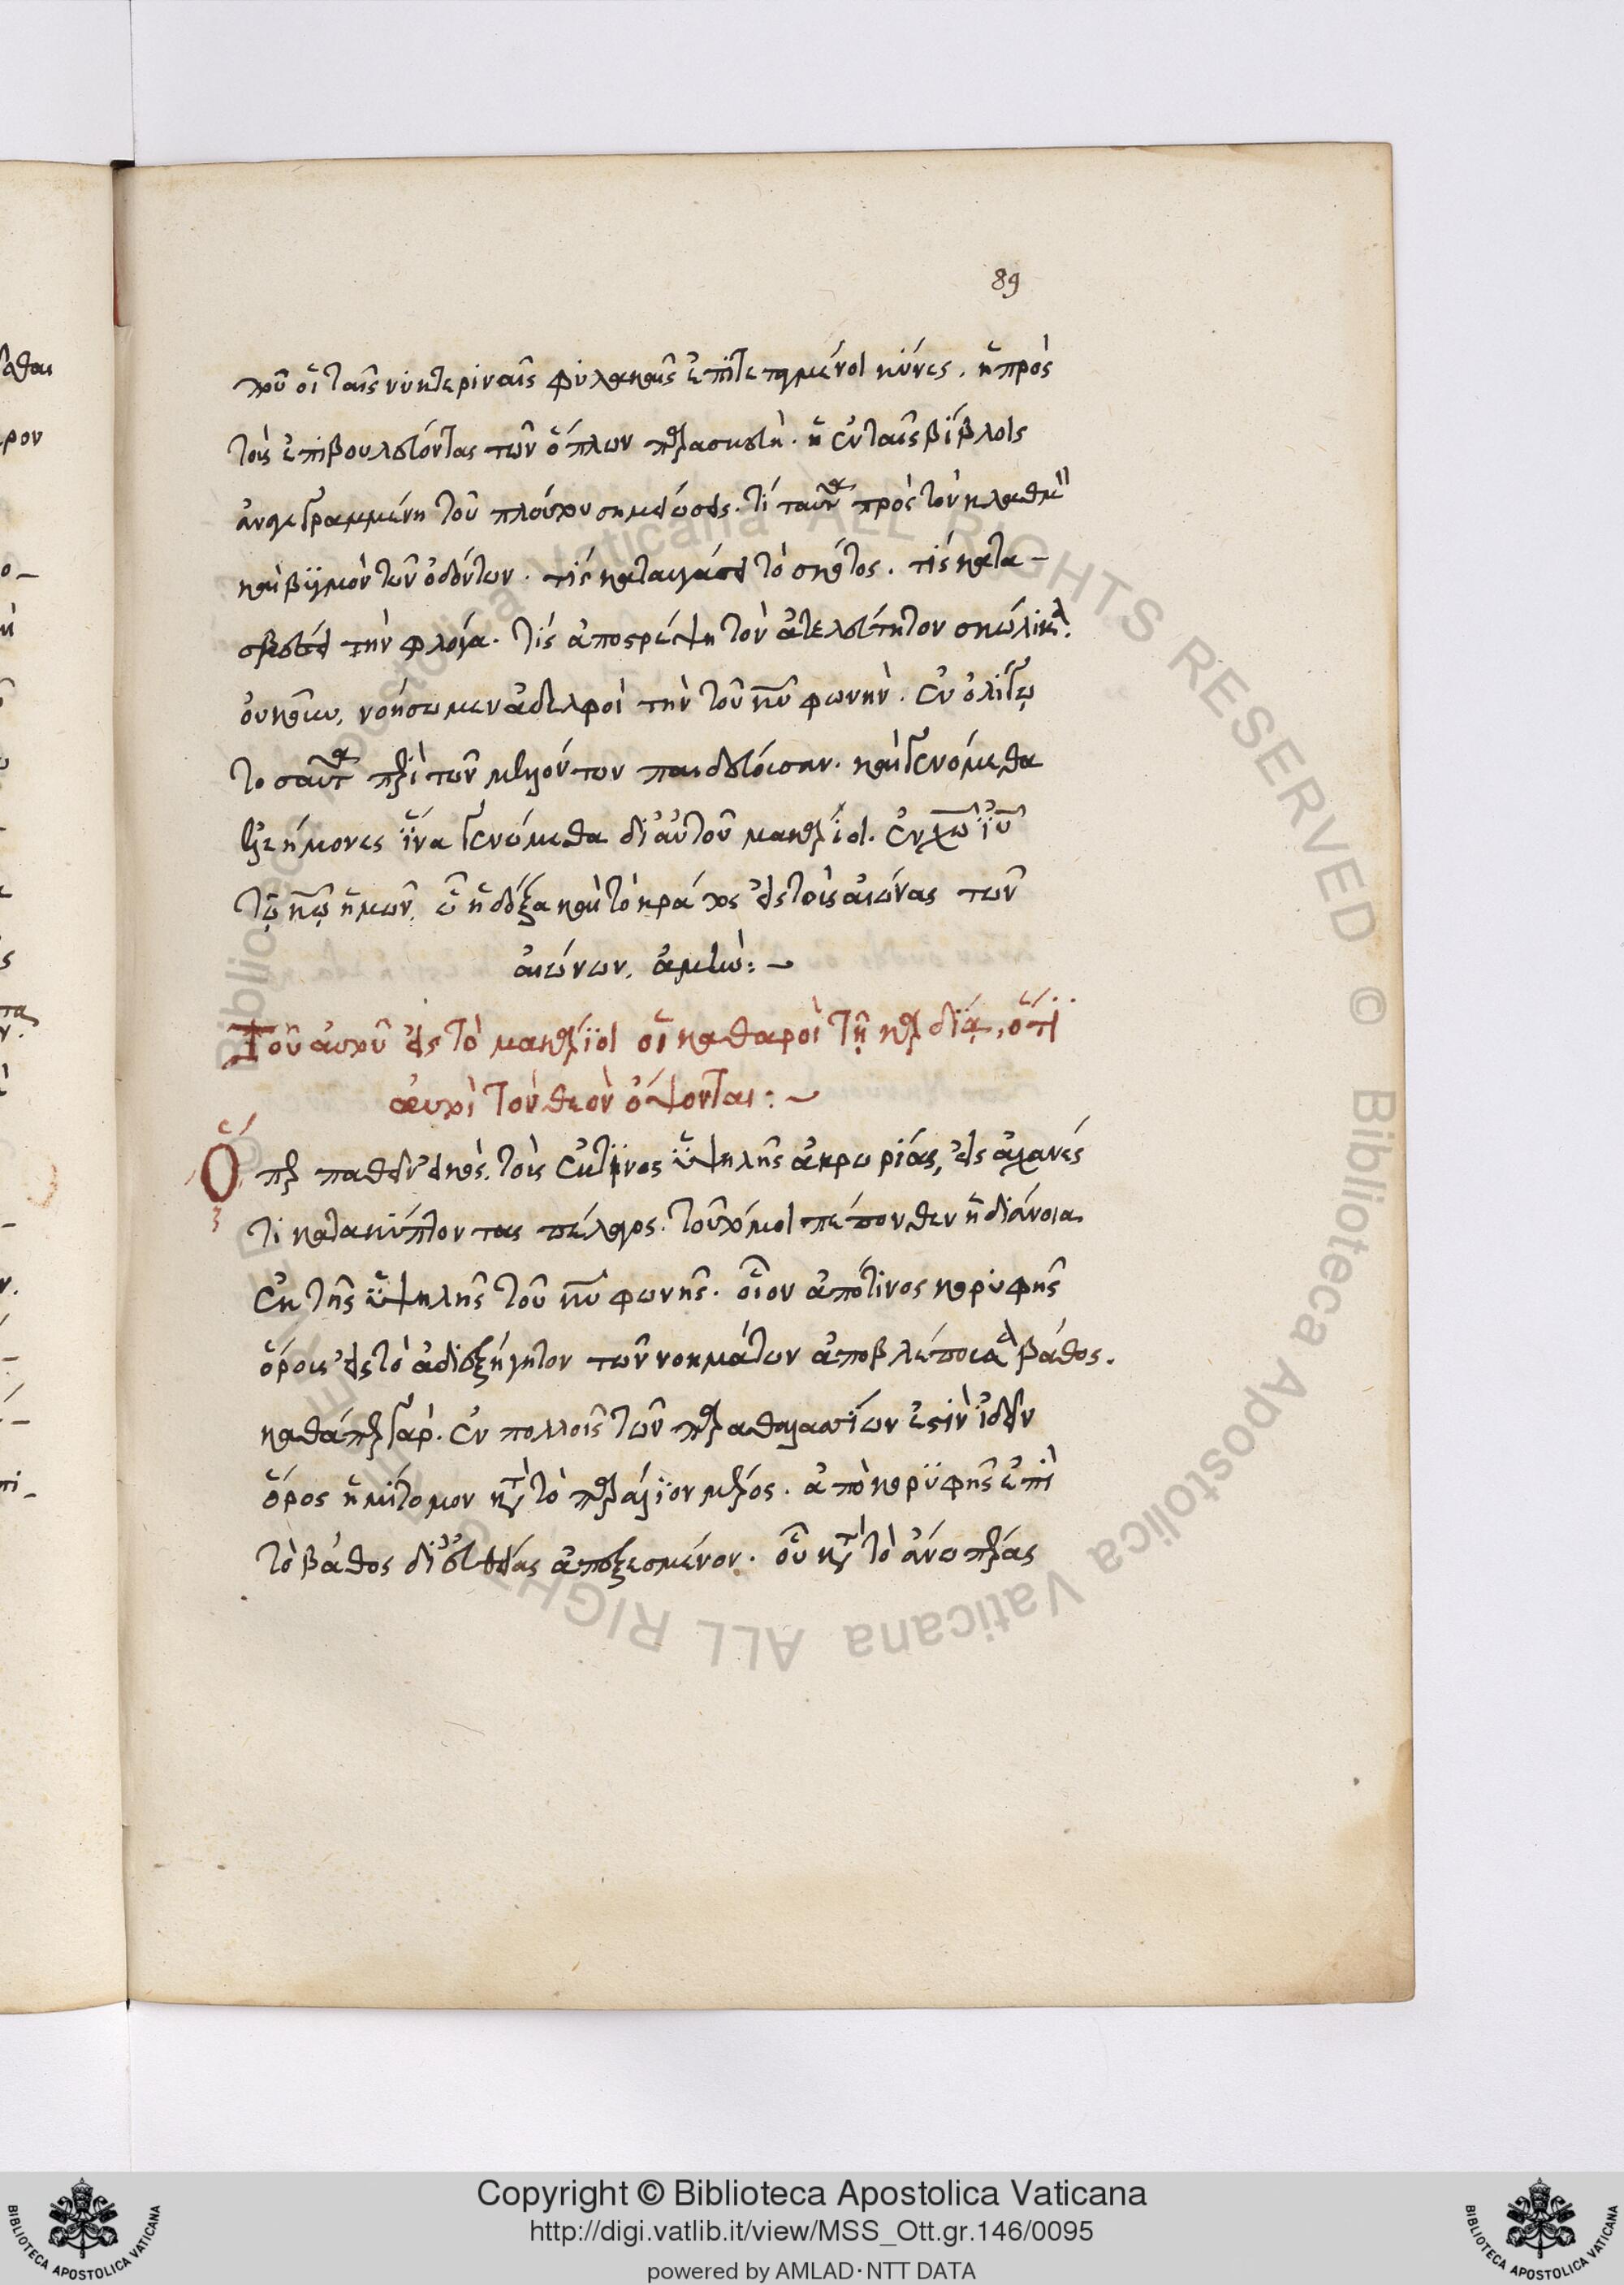 89
που οἱ ταῖς νυκτεριναῖς φυλακαῖς ἐπιτεταγμένοι κύνες. ἢ πρὸς
τοὺς ἐπιβουλεύοντας τῶν ὅπλων παρασκευὴ. ἢ ἐν ταῖς βίβλοις
ἀναγεγραμμένη τοῦ πλούτου σημείωσις. τί ταῦτα πρὸς τὸν κλαυθμὸν
καὶ βρυγμὸν τῶν ὀδόντων. τίς καταυγάσει τὸ σκότος. τίς κατα-
σβέσει τὴν φλόγα. τίς ἀποστρέψη τὸν ἀτελεύτητον σκώληκα.
οὐκοῦν, νοήσωμεν ἀδελφοὶ τὴν τοῦ κυ φωνὴν. ἐν ὀλίγω
τοσαῦτα περὶ τῶν μελλόντων παιδεύουσαν. καὶ γενόμεθα
ἐλεήμονες ἵνα γενώμεθα δι' αὐτοῦ μακάριοι. ἐν χω ιυ
τῷ κω ἡμῶν, ᾧ ἡ δόξα καὶ τὸ κράτος εἰς τοὺς αἰῶνας τῶν
αἰώνων. ἀμήν:
Τοῦ αὐτοῦ εἰς τὸ μακάριοι οἱ καθαροὶ τῇ καρδίᾳ, ὅτι
αὐτοὶ τὸν θεὸν ὄψονται:
Ὅπερ παθεῖν εἰκὸς. τοὺς ἔκ τινος ὑψηλῆς ἀκρωρείας, εἰς ἀχανές
τι κατακύπτοντας πέλαγος. τοῦτό μοι πέπονθεν ἡ διάνοια
ἐκ τῆς ὑψηλῆς τοῦ κυ φωνῆς. οἷον ἀπό τινος κορυφῆς
ὄρους εἰς τὸ ἀδιεξήγητον τῶν νοημάτων ἀποβλέπουσα βάθος.
καθάπερ γὰρ. ἐν πολλοῖς τῶν παραθαλασσίων ἔστιν ἰδεῖν
ὄρος ἡμίτομον κατὰ τὸ παράλιον μέρος. ἀπὸ κορυφῆς ἐπὶ
τὸ βάθος δι' εὐθείας ἀπεξεσμένον. οὗ κατὰ τὸ ἄνω πέρας
Copyright © Biblioteca Apostolica Vaticana
http://digi.vatlib.it/view/MSS_Ott.gr.146/0095
powered by AMLAD·NTT DATA